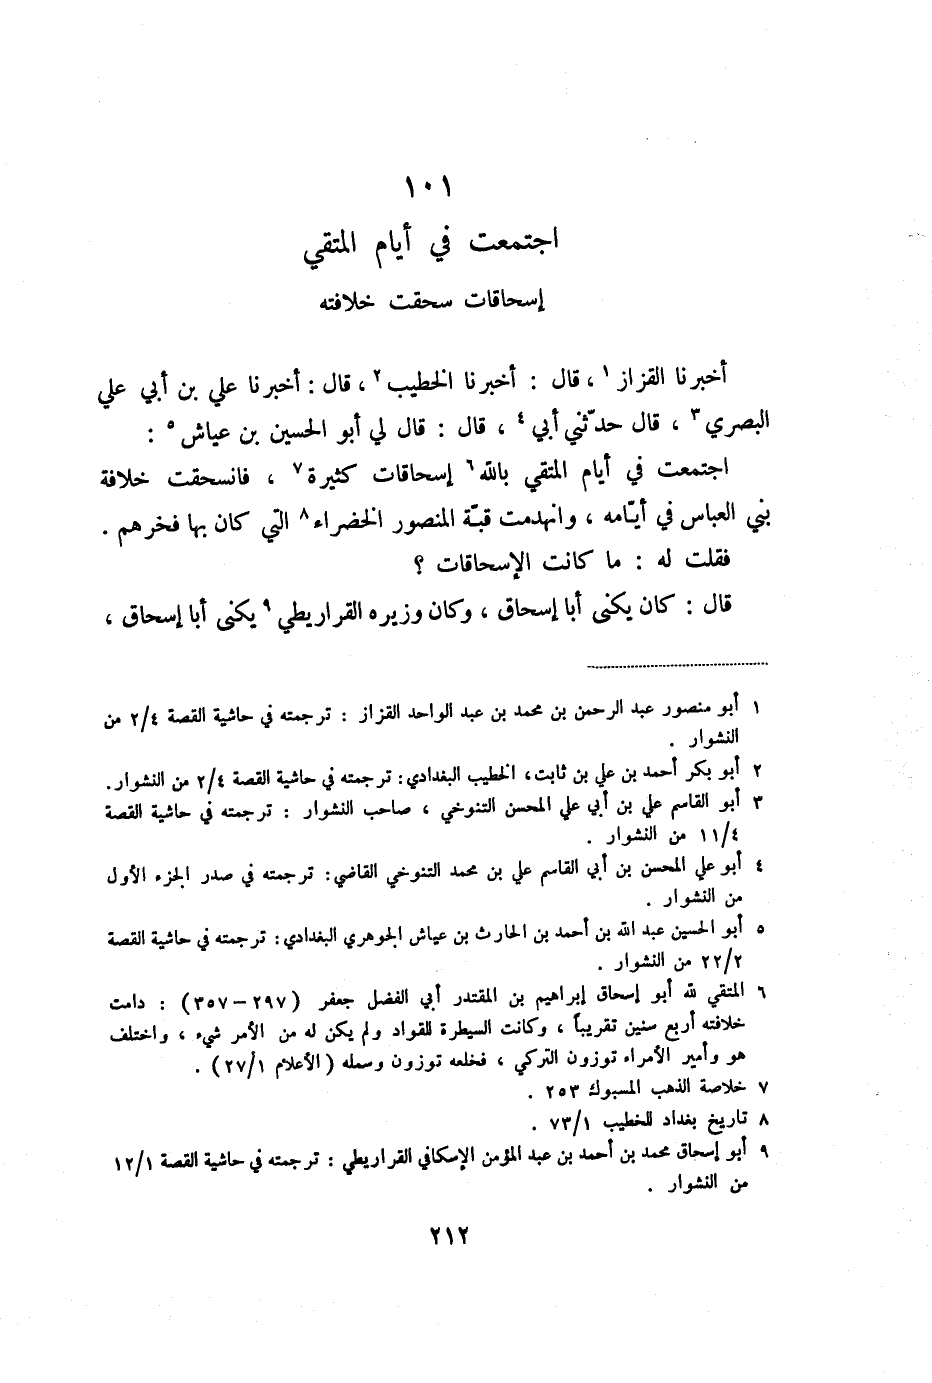 ١٠١
اجتمعت في أيام المتقي
إسحاقات سحقت خلافته
أخبرنا القزاز ١ ، قال : أخبرنا الخطيب ٢ ، قال : أخبرنا علي بن أبي علي
البصري ٣ ، قال حدّثني أبي ٤ ، قال : قال لي أبو الحسين بن عياش ٥ :
اجتمعت في أيام المتقي بالله ٦ إسحاقات كثيرة ٧ ، فانسحقت خلافة
بني العباس في أيّامه ، وانهدمت قبّة المنصور الخضراء ٨ التي كان بها فخرهم .
فقلت له : ما كانت الإسحاقات ؟
قال : كان يكنى أبا إسحاق ، وكان وزيره القراريطي ٩ يكنى أبا إسحاق ،
١ أبو منصور عبد الرحمن بن محمد بن عبد الواحد القزاز : ترجمته في حاشية القصة ٢/٤ من
النشوار .
٢ أبو بكر أحمد بن علي بن ثابت، الخطيب البغدادي : ترجمته في حاشية القصة ٢/٤ من النشوار.
٣ أبو القاسم علي بن أبي علي المحسن التنوخي ، صاحب النشوار : ترجمته في حاشية القصة
١١/٤ من النشوار .
٤ أبو علي المحسن بن أبي القاسم علي بن محمد التنوخي القاضي : ترجمته في صدر الجزء الأول
من النشوار .
٥ أبو الحسين عبد الله بن أحمد بن الحارث بن عياش الجوهري البغدادي : ترجمته في حاشية القصة
٢٢/٢ من النشوار .
٦ المتقي لله أبو إسحاق إبراهيم بن المقتدر أبي الفضل جعفر (٢٩٧ – ٣٥٧) : دامت
خلافته أربع سنين تقريباً ، وكانت السيطرة للقواد ولم يكن له من الأمر شيء ، واختلف
هو وأمير الأمراء توزون التركي ، فخلعه توزون وسمله (الأعلام ٢٧/١) .
٧ خلاصة الذهب المسبوك ٢٥٣ .
٨ تاريخ بغداد للخطيب ٧٣/١ .
٩ أبو إسحاق محمد بن أحمد بن عبد المؤمن الإسكافي القراريطي : ترجمته في حاشية القصة ١٢/١
من النشوار .
٢١٢